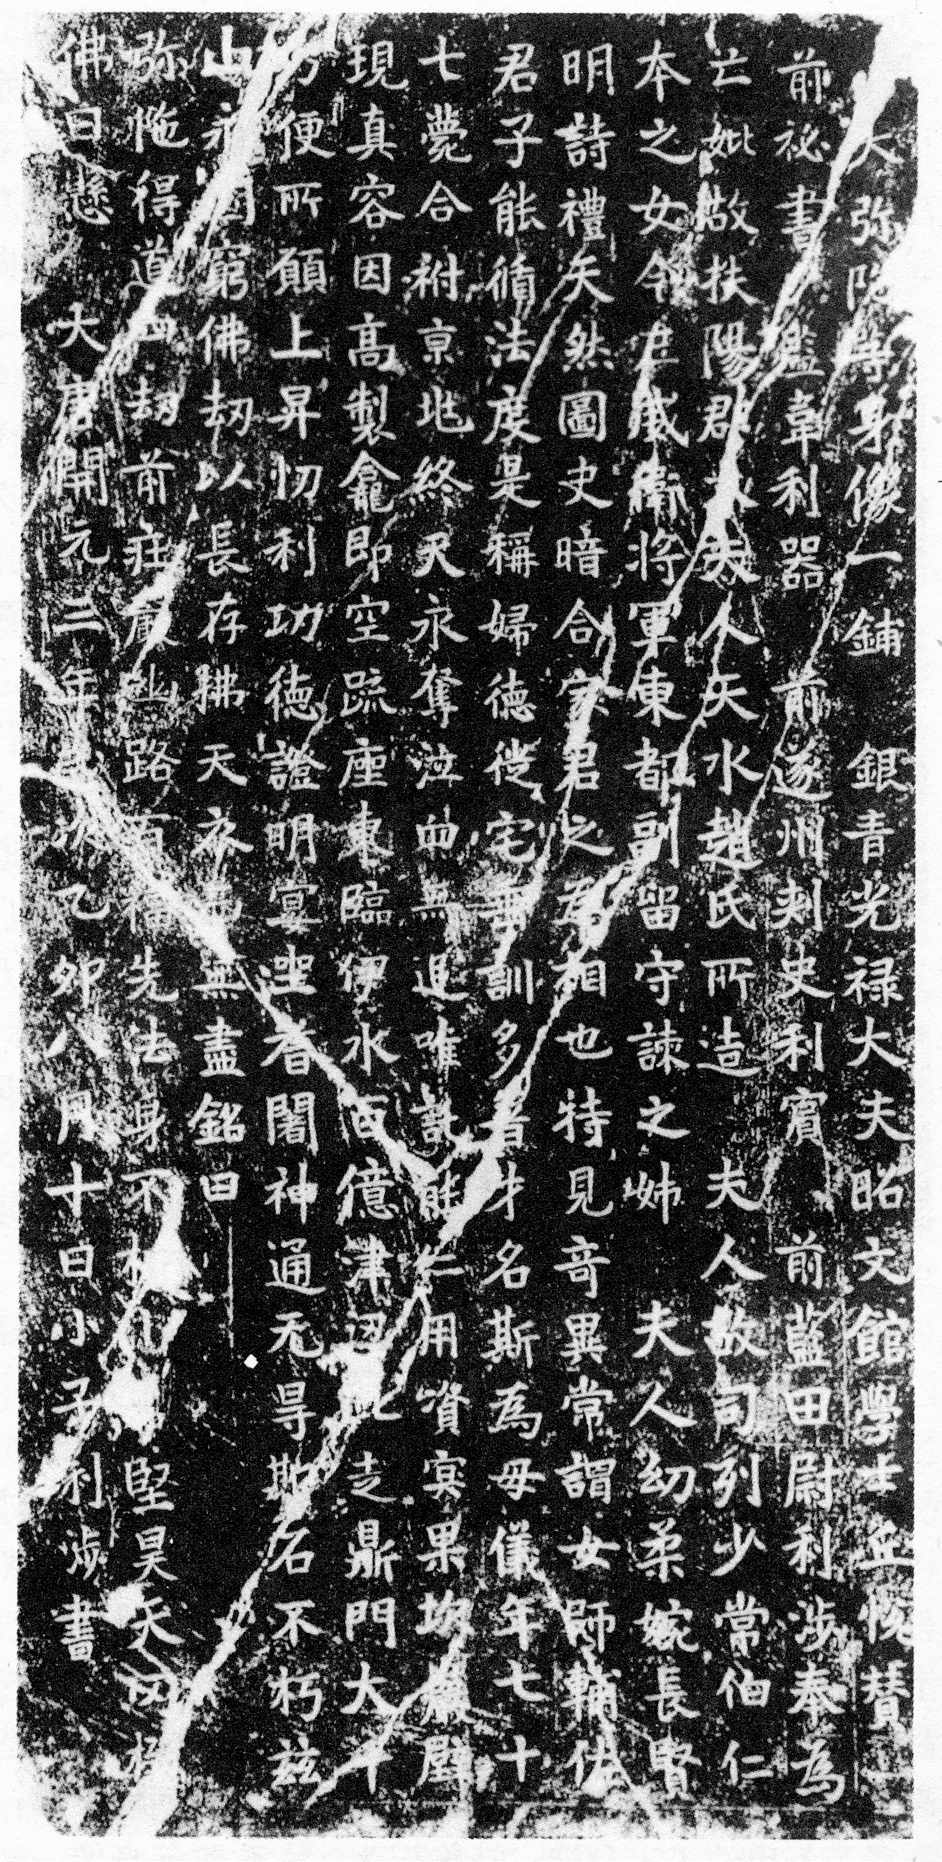 大弥陁等身像一鋪　銀青光禄大夫昭文館學士丘悅賛
前祕書監韋利器　前遂州刾史利賓　前藍田尉利涉奉為
亡妣故扶陽郡太夫人天水趙氏所造　夫人故司列少常伯仁
本之女令左威衛將軍東都副留守諫之姊　夫人幼柔婉長賢
明詩禮矢然圖史暗合家君之為相也特見奇異常謂女師輔佐
君子能循法度是稱婦德徙宅垂訓多者才名斯為母儀年七十
七薨合祔京地終天永奪泣血無逮唯託能仁用資冥果坎巖壁
現真容因高製龕即空疏座東臨伊水百億津迢北走鼎門大千
方便所願上昇忉利功德證明宴坐者闍神通无导斯石不朽兹
山永固窮佛劫以長存拂天衣而無盡銘曰
弥陁得道四劫前在嚴此路有福先法身不朽山堅昊天罔極
佛日懸　大唐開元三年歲次乙卯八月十日小子利涉書